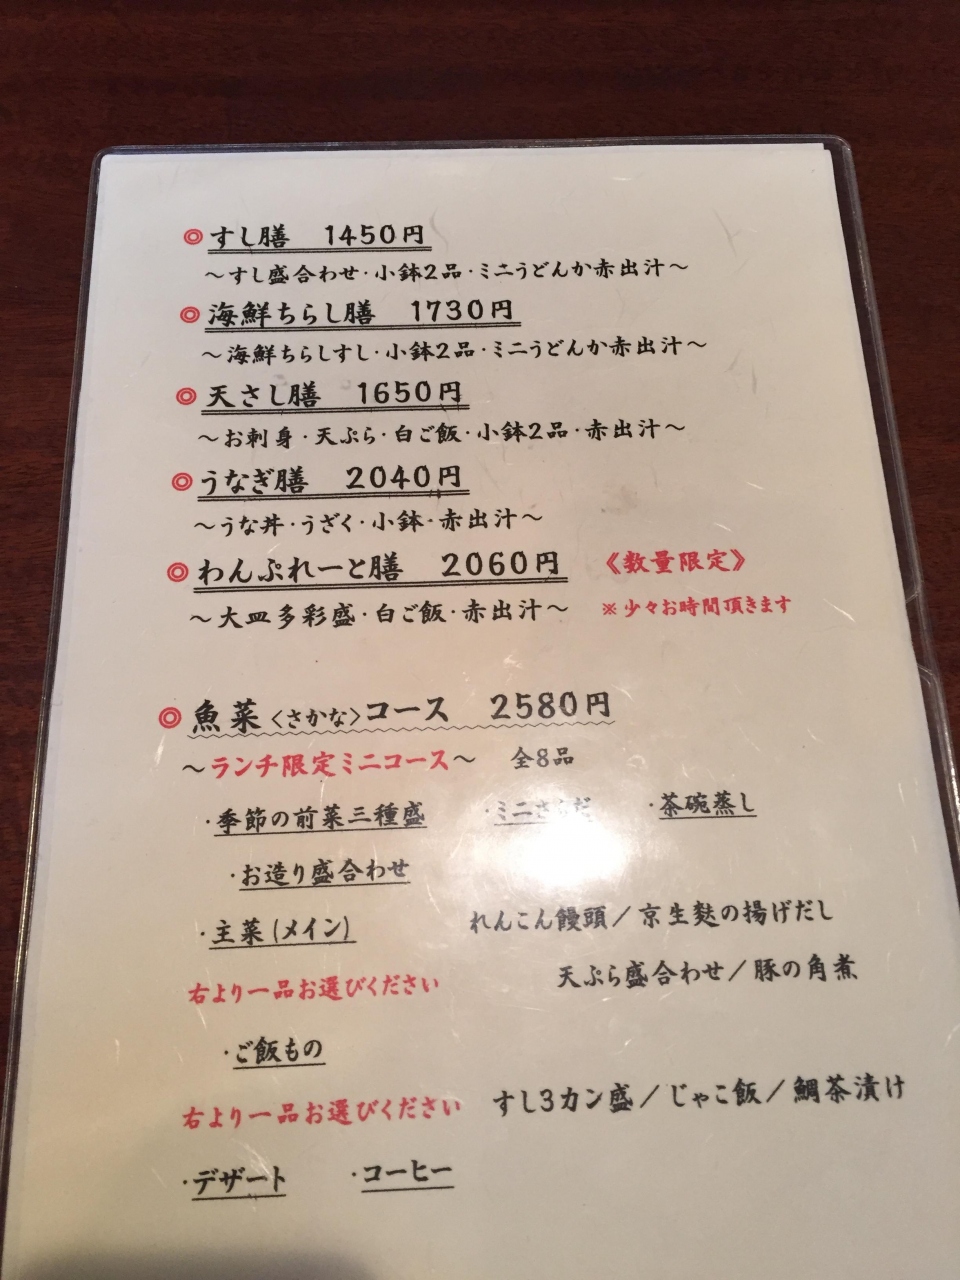 ◎すし膳 1450円
～すし盛合わせ・小鉢2品・ミニうどんか赤出汁～
◎海鮮ちらし膳 1730円
～海鮮ちらしすし・小鉢2品・ミニうどんか赤出汁～
◎天さし膳 1650円
～お刺身・天ぷら・白ご飯・小鉢2品・赤出汁～
◎うなぎ膳 2040円
～うな丼・うざく・小鉢・赤出汁～
◎わんぷれーと膳 2060円 《数量限定》
～大皿多彩盛・白ご飯・赤出汁～ ※少々お時間頂きます
◎魚菜〈さかな〉コース 2580円
～ランチ限定ミニコース～ 全8品
・季節の前菜三種盛 ・ミニさらだ ・茶碗蒸し
・お造り盛合わせ
・主菜(メイン) れんこん饅頭／京生麩の揚げだし
天ぷら盛合わせ／豚の角煮
右より一品お選びください
・ご飯もの
右より一品お選びください すし3カン盛／じゃこ飯／鯛茶漬け
・デザート ・コーヒー